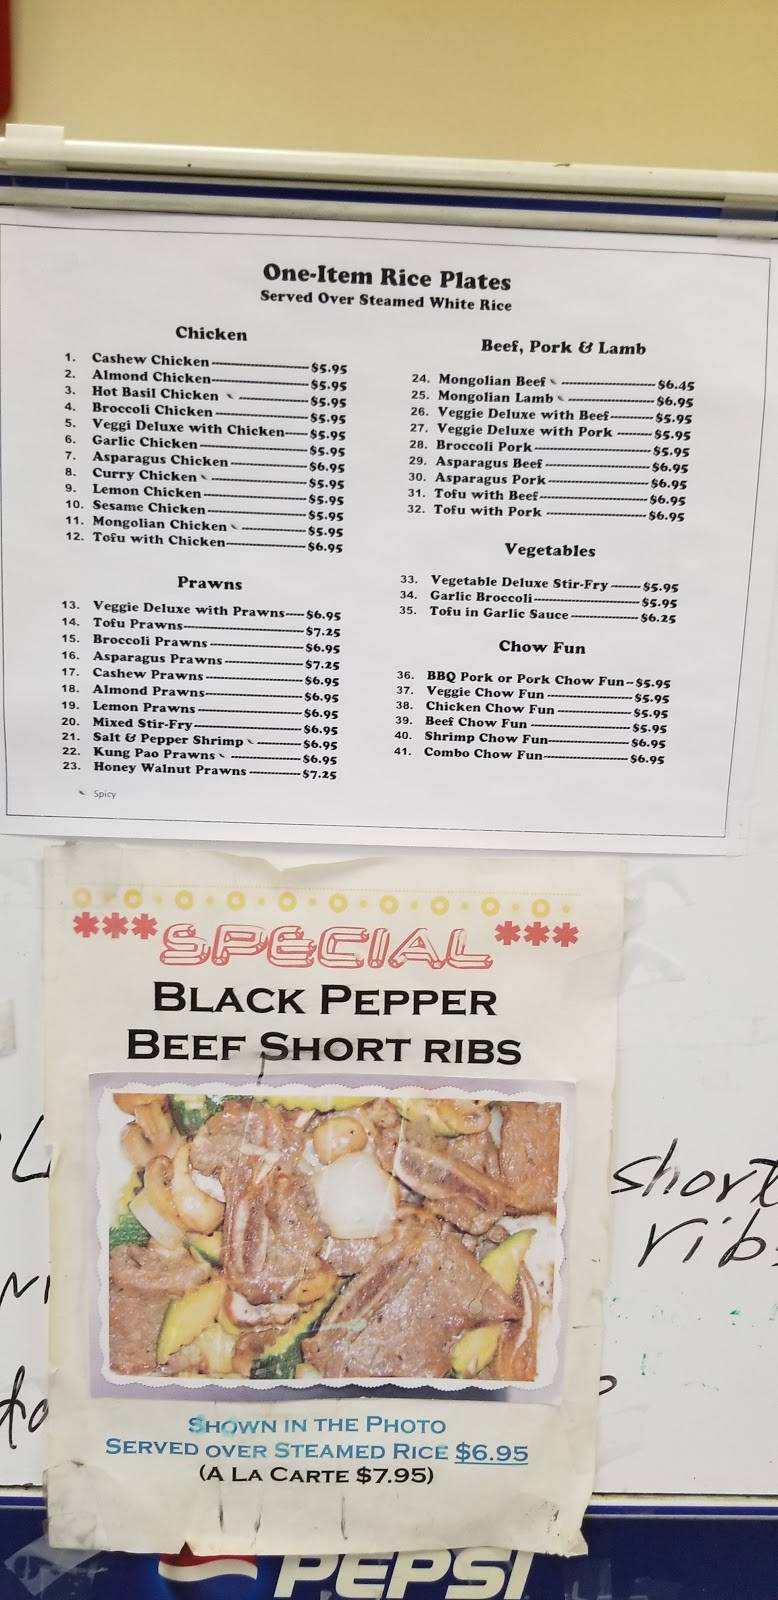 One-Item Rice Plates
Served Over Steamed White Rice
Chicken
1. Cashew Chicken $5.95
2. Almond Chicken $5.95
3. Hot Basil Chicken $5.95
4. Broccoli Chicken $5.95
5. Veggi Deluxe with Chicken $5.95
6. Garlic Chicken $5.95
7. Asparagus Chicken $6.95
8. Curry Chicken $5.95
9. Lemon Chicken $5.95
10. Sesame Chicken $5.95
11. Mongolian Chicken $5.95
12. Tofu with Chicken $6.95
Prawns
13. Veggie Deluxe with Prawns $6.95
14. Tofu Prawns $7.25
15. Broccoli Prawns $6.95
16. Asparagus Prawns $7.25
17. Cashew Prawns $6.95
18. Almond Prawns $6.95
19. Lemon Prawns $6.95
20. Mixed Stir-Fry $6.95
21. Salt & Pepper Shrimp $6.95
22. Kung Pao Prawns $6.95
23. Honey Walnut Prawns $7.25
Spicy
Beef, Pork & Lamb
24. Mongolian Beef $6.45
25. Mongolian Lamb $6.95
26. Veggie Deluxe with Beef $5.95
27. Veggie Deluxe with Pork $5.95
28. Broccoli Pork $5.95
29. Asparagus Beef $6.95
30. Asparagus Pork $6.95
31. Tofu with Beef $6.95
32. Tofu with Pork $6.95
Vegetables
33. Vegetable Deluxe Stir-Fry $5.95
34. Garlic Broccoli $5.95
35. Tofu in Garlic Sauce $6.25
Chow Fun
36. BBQ Pork or Pork Chow Fun $5.95
37. Veggie Chow Fun $5.95
38. Chicken Chow Fun $5.95
39. Beef Chow Fun $5.95
40. Shrimp Chow Fun $6.95
41. Combo Chow Fun $6.95
***SPECIAL***
BLACK PEPPER
BEEF SHORT RIBS
SHOWN IN THE PHOTO
SERVED OVER STEAMED RICE $6.95
(A LA CARTE $7.95)
short
rib
PEPSI